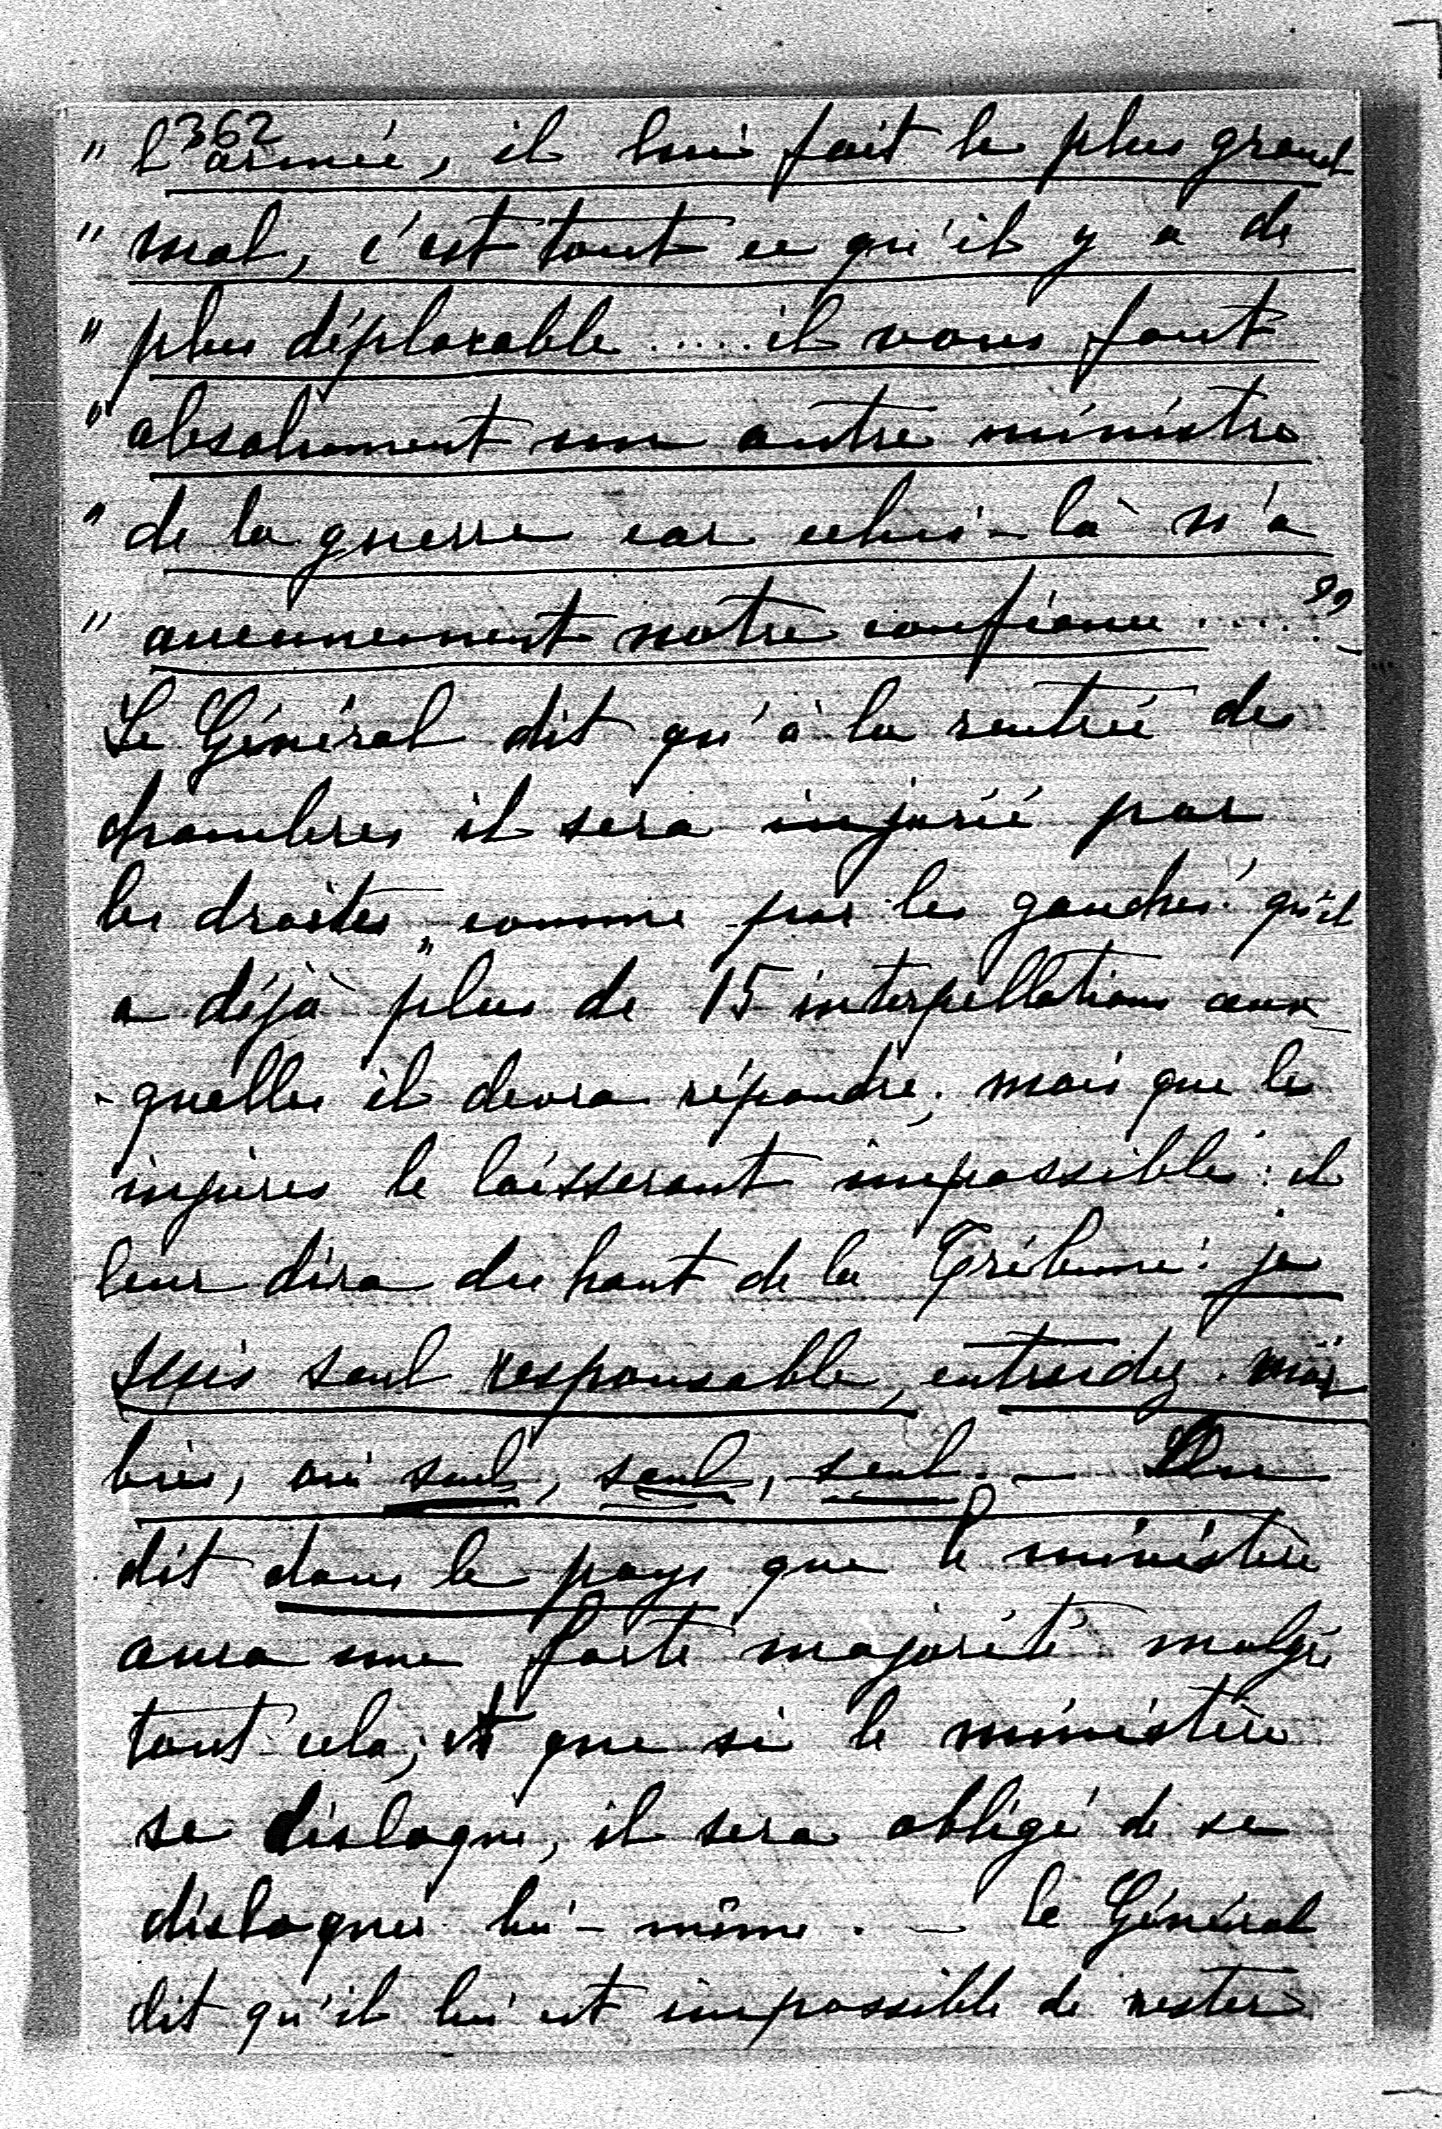 362
" l'armée, il lui fait le plus grand
" mal, c'est tout ce qu'il y a de
" plus déplorable ..... il vous faut
" absolument un autre ministre
" de la guerre car celui-là n'a
" aucunement notre confiance ..... "
Le Général dit qu'à la rentrée des
chambres il sera injurié par
les droites, comme par les gauches: qu'il
a déjà plus de 15 interpellations aux
-quelles il devra répondre; mais que les
injures le laisseront impassible: il
leur dira du haut de la Tribune: je
suis seul responsable, entendez-moi
bien, oui seul, seul, seul. — On
dit dans le pays que le ministère
aura une forte majorité malgré
tout cela; et que si le ministère
se disloque, il sera obligé de se
disloquer lui-même. — Le Général
dit qu'il lui est impossible de rester